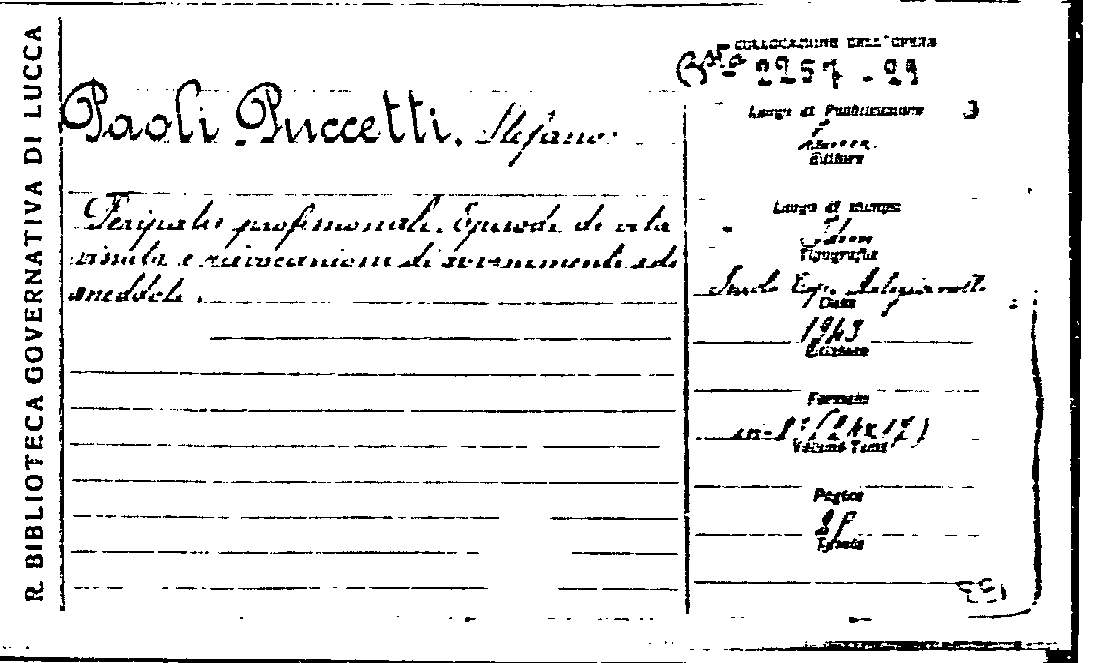 R. BIBLIOTECA GOVERNATIVA DI LUCCA
COLLOCAZIONE DELL'OPERA
Bsta 2257-29
Paoli Puccetti. Stefano.
Luogo di Pubblicazione
Lucca.
Editore
Peripatie professionali. Episodi di vita
vissuta e rievocazioni di avvenimenti ed
aneddoti.
Luogo di stampa
Lucca
Tipografia
Scuola Tip. Artigianelli
Data
1943
Edizione
Formato
in-8°(24x17)
Volumi Tomi
Pagine